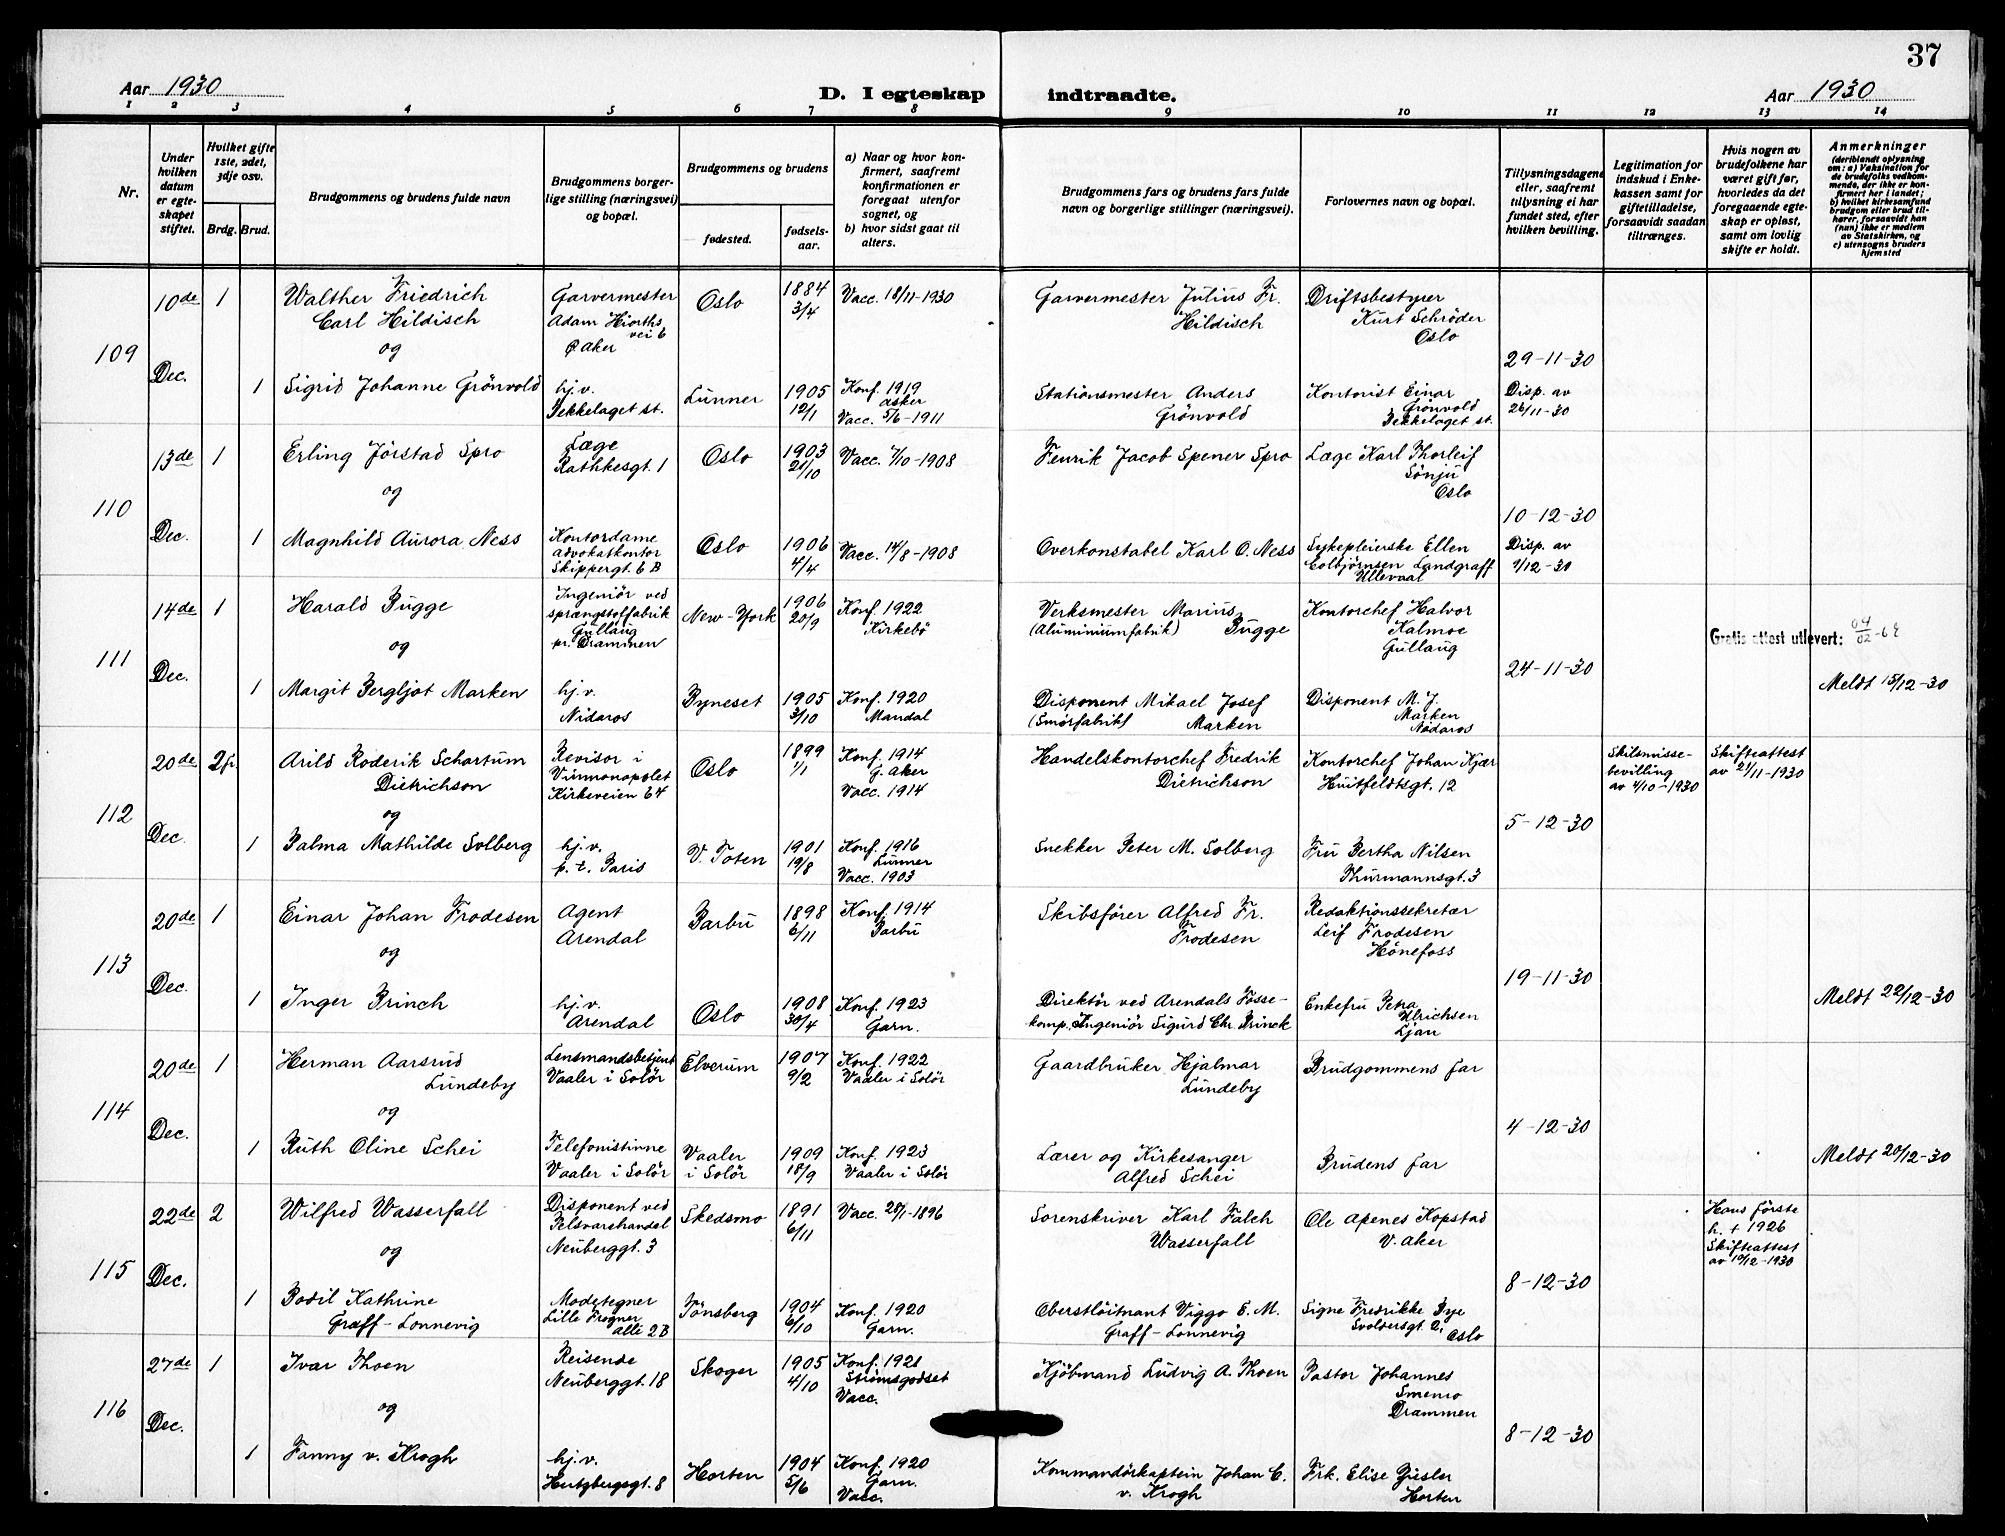 37
Aar 1930
D. I egteskap indtraadte.
Aar 1930
1 2 3 4 5 6 7 8 9 10 11 12 13 14
Nr.
Under hvilken datum er egteskapet stiftet.
Hvilket gifte 1ste, 2det, 3dje osv.
Brdg. Brud.
Brudgommens og brudens fulde navn
Brudgommens borgerlige stilling (næringsvei) og bopæl.
Brudgommens og brudens
fødested.
fødselsaar.
a) Naar og hvor konfirmert, saafremt konfirmationen er foregaat utenfor sognet, og
b) hvor sidst gaat til alters.
Brudgommens fars og brudens fars fulde navn og borgerlige stillinger (næringsvei).
Forlovernes navn og bopæl.
Tillysningsdagene eller, saafremt tillysning ei har fundet sted, efter hvilken bevilling.
Legitimation for indskud i Enkekassen samt for giftetilladelse, forsaavidt saadan tiltrænges.
Hvis nogen av brudefolkene har været gift før, hvorledes da det foregaaende egteskap er opløst, samt om lovlig skifte er holdt.
Anmerkninger
(deriblandt oplysning om: a) Vaksination for de brudefolks vedkommende, der ikke er konfirmert her i landet; b) hvilket kirkesamfund brudgom eller brud tilhører, forsaavidt han (hun) ikke er medlem av Statskirken, og c) utensogns bruders hjemsted
109
10de Dec.
1
Walther Friedrich
Carl Hildisch
og
Garvermester
Adam Hiorths
vei 6
Ø Aker
Oslo
1884
3/4
Vacc. 18/11-1930
Garvermester Julius Fr.
Hildisch
Driftsbestyrer
Kurt Schröder
Oslo
29-11-30
1
Sigrid Johanne Grönvold
hj.v.
Bekkelaget st.
Lunner
1905
12/1
Konf. 1919
Asker
Vacc. 5/6-1911
Stationsmester Anders
Grönvold
Kontorist Einar
Grönvold
Bekkelaget st.
Disp. av
26/11-30
110
13de Dec.
1
Erling Jörstad Spro
og
Læge
Rathkesgt. 1
Oslo
1903
21/10
Vacc. 7/10-1908
Henrik Jacob Spener Spro
Læge Karl Thorleif
Sönju
Oslo
10-12-30
1
Magnhild Aurora Ness
Kontordame
advokatkontor
Skippergt. 6 B
Oslo
1906
4/4
Vacc. 14/8-1908
Overkonstabel Karl O. Ness
Sykepleierske Ellen
Colbjørnsen Landgraff
Ullevaal
Disp. av
1/12-30
111
14de Dec.
1
Harald Bugge
og
Ingeniör ved
sprængstoffabrik
Gullaug
pr. Drammen
New-York
1906
20/9
Konf. 1922
Kirkebö
Verksmester Marius
(Aluminiumfabrik) Bugge
Kontorchef Halvor
Kalmoe
Gullaug
24-11-30
Gratis attest utlevert:
1
Margit Bergljot Marken
hj.v.
Nidaros
Byneset
1905
3/10
Konf. 1920
Mandal
Disponent Mikael Josef
(Smørfabrik) Marken
Disponent M. J.
Marken
Nidaros
Meldt 15/12-30
112
20de Dec.
2 fr.
Arild Roderik Schartum
Dietrichson
og
Revisor i
Vinmonopolet
Kirkeveien 64
Oslo
1899
1/1
Konf. 1914
G. Aker
Vacc. 1914
Handelskontorchef Fredrik
Dietrichson
Kontorchef Johan Kjær
Huitfeldtsgt. 12
5-12-30
Skilsmisse-
bevilling
av 4/10-1930
Skifteattest
av 21/11-1930
1
Palma Mathilde Solberg
hj.v.
p.t. Paris
V. Toten
1901
19/8
Konf. 1916
Lunner
Vacc. 1903
Snekker Peter M. Solberg
Fru Bertha Nilsen
Thurmannsgt. 3
113
20de Dec.
1
Einar Johan Frodesen
og
Agent
Arendal
Barbu
1898
6/11
Konf. 1914
Barbu
Skibsförer Alfred Fr.
Frodesen
Redaktionssekretær
Leif Frodesen
Hönefoss
19-11-30
1
Inger Brinch
hj.v.
Arendal
Oslo
1908
30/4
Konf. 1923
Garn.
Direktör ved Arendals Fosse-
komp. Ingeniör Sigurd Chr. Brinck
Enkefru Petra
Ulrichsen
Ljan
Meldt 22/12-30
114
20de Dec.
1
Herman Aarsrud
Lundeby
og
Lensmandsbetjent
Vaaler i Solör
Elverum
1907
9/2
Konf. 1922
Vaaler i Solör
Gaardbruker Hjalmar
Lundeby
Brudgommens far
4-12-30
1
Ruth Oline Schei
Telefonistinne
Vaaler i Solör
Vaaler
i Solör
1909
18/9
Konf. 1923
Vaaler i Solör
Lærer og Kirkesanger
Alfred Schei
Brudens far
Meldt 20/12-30
115
22de Dec.
2
Wilfred Wasserfall
og
Disponent ved
Pelsvarehandel
Neuberggt. 3
Skedsmo
1891
6/11
Vacc. 28/1-1896
Sorenskriver Karl Falch
Wasserfall
Ole Apenes Kopstad
V. Aker
8-12-30
Hans förste
h. † 1926
Skifteattest
av 19/12-1930
1
Bodil Kathrine
Graff-Lonnevig
Modetegner
Lille Frogner
alle 2B
Tönsberg
1904
6/10
Konf. 1920
Garn.
Oberstlöitnant Viggo E. M.
Graff-Lonnevig
Signe Fredrikke Bye
Svoldersgt. 2,
Oslo
116
27de Dec.
1
Ivar Thoen
og
Reisende
Neuberggt. 18
Skoger
1905
4/10
Konf. 1921
Strömsgodset
Vacc.
Kjöbmand Ludvig A. Thoen
Pastor Johannes
Smemo
Drammen
8-12-30
1
Fanny v. Krogh
hj.v.
Hertzbergsgt. 8
Horten
1904
5/6
Konf. 1920
Garn.
Vacc.
Kommandörkaptein Johan C.
v. Krogh
Frk. Elise Ziesler
Horten